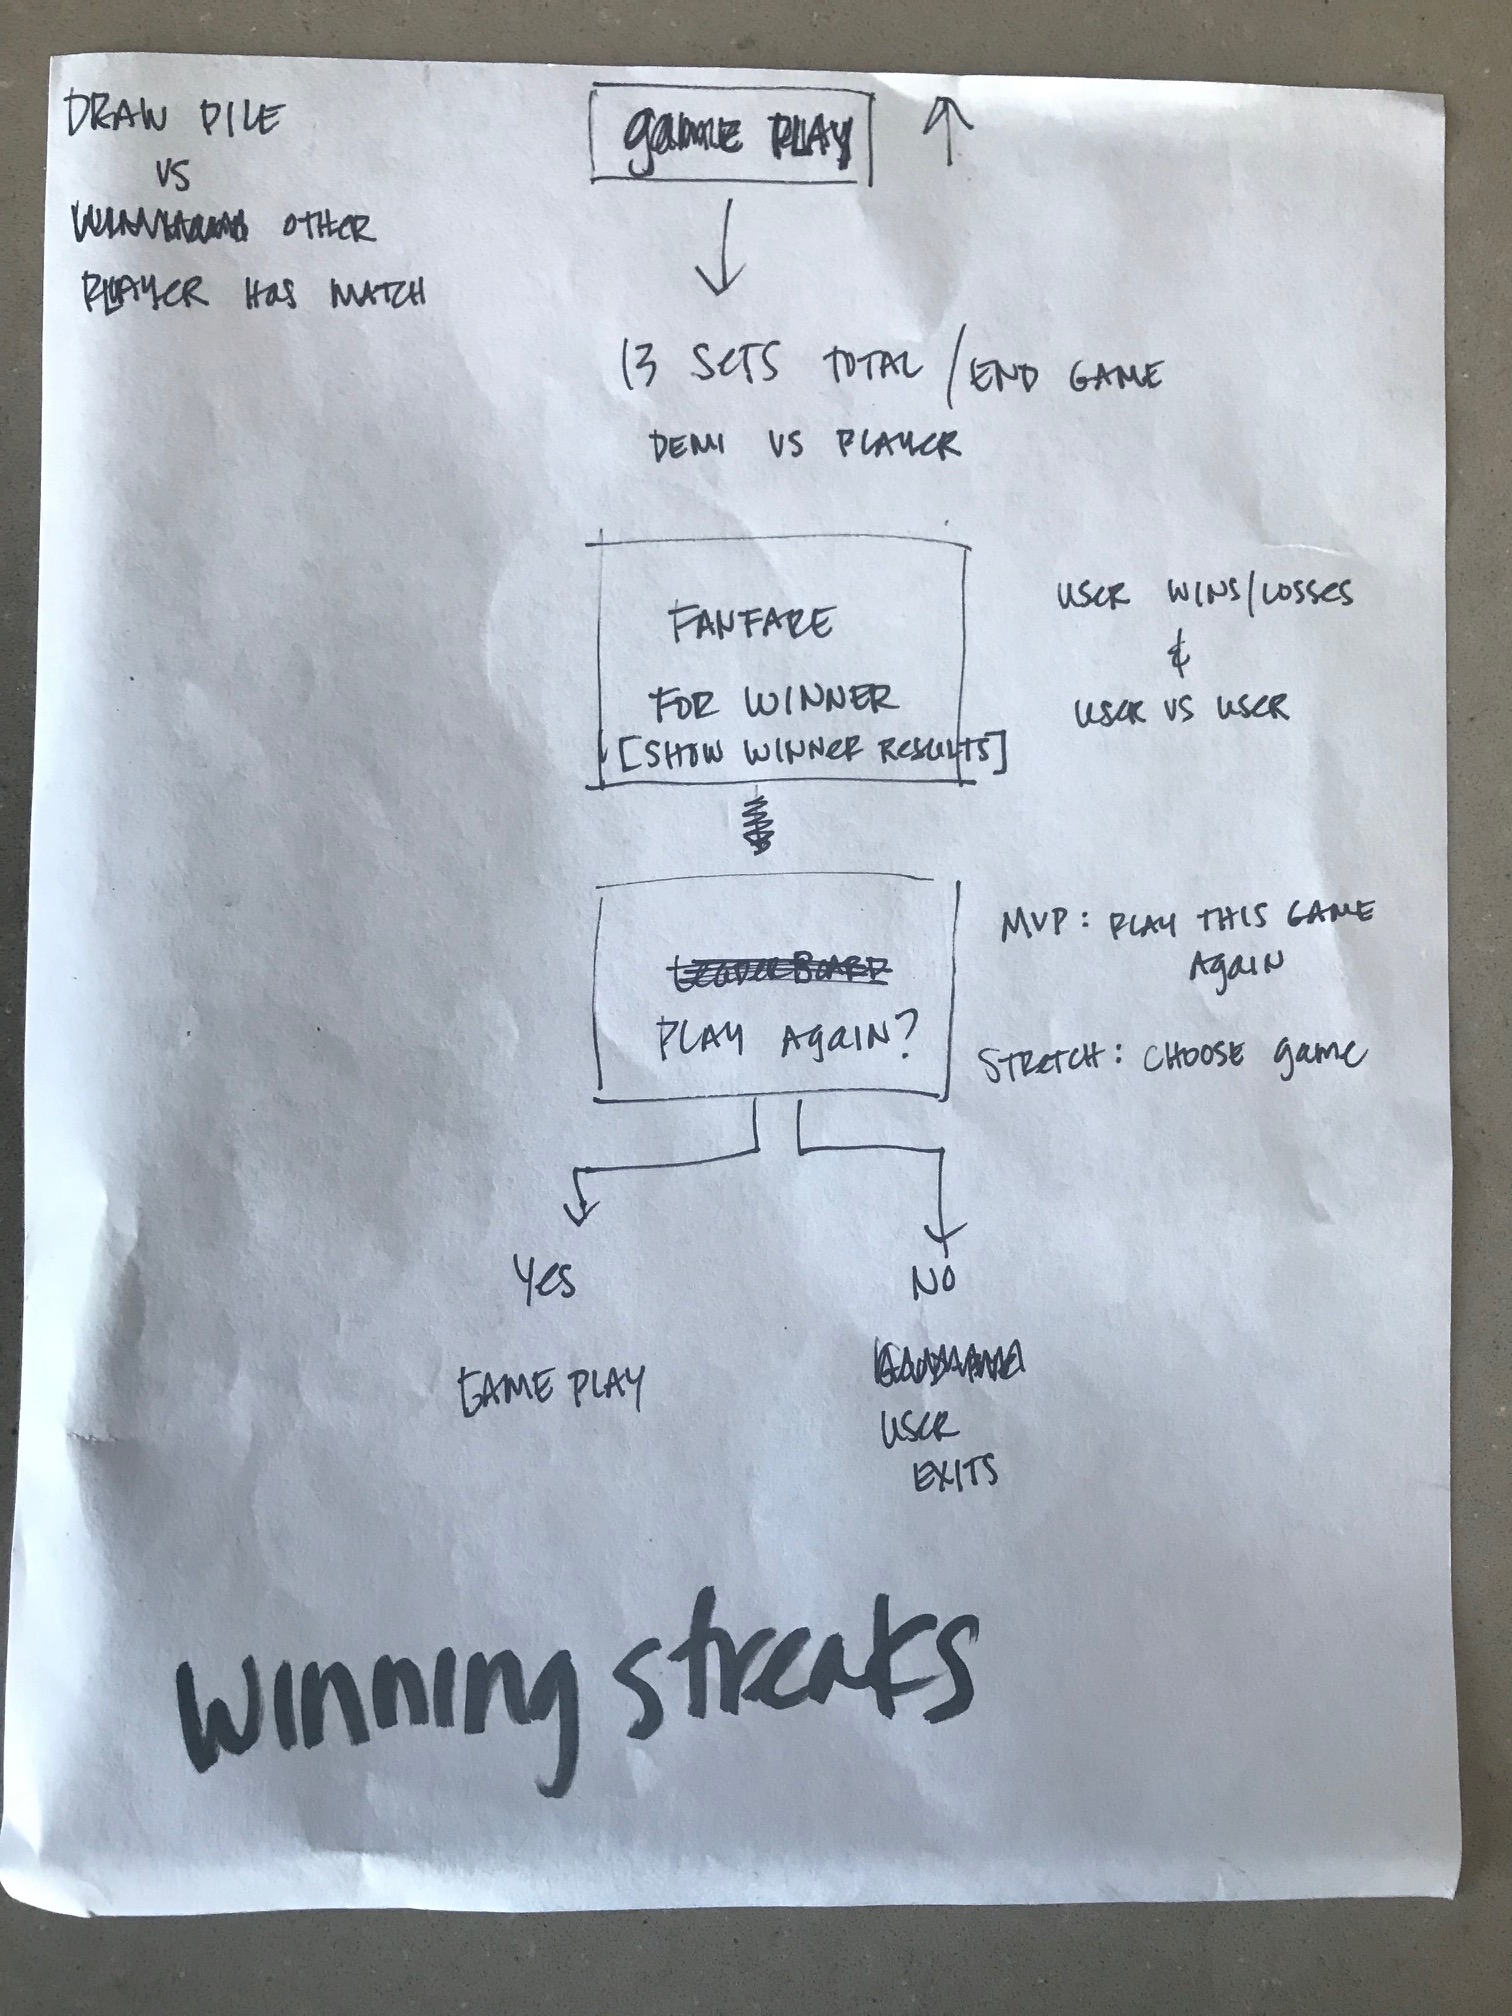 DRAW PILE
VS
OTHER
PLAYER HAS MATCH
game PLAY
13 SETS TOTAL / END GAME
DEMI VS PLAYER
FANFARE
FOR WINNER
[SHOW WINNER RESULTS]
USER WINS/LOSSES
&
USER VS USER
LEADERBOARD
PLAY AGAIN?
MVP: PLAY THIS GAME
AGAIN
STRETCH: CHOOSE game
Yes
NO
GAME PLAY
USER
EXITS
winning streaks